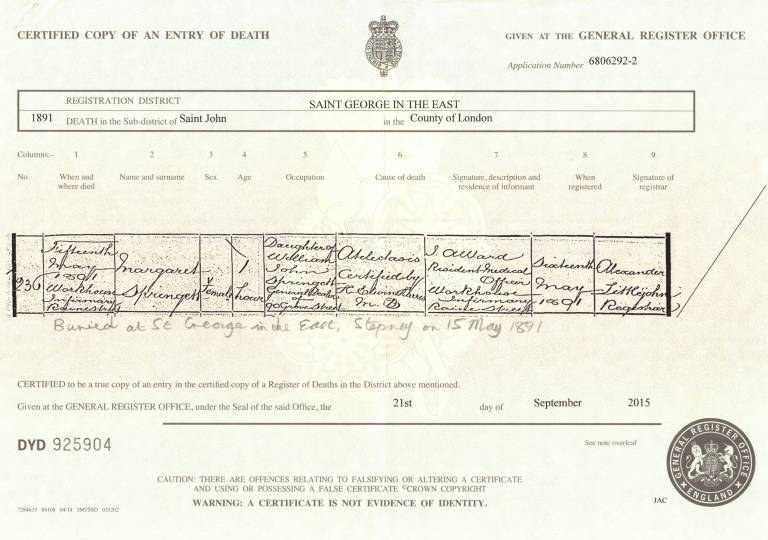 CERTIFIED COPY OF AN ENTRY OF DEATH
GIVEN AT THE GENERAL REGISTER OFFICE
Application Number 6806292-2
REGISTRATION DISTRICT SAINT GEORGE IN THE EAST
1891 DEATH in the Sub-district of Saint John in the County of London
Columns:- 1 2 3 4 5 6 7 8 9
No. When and where died Name and surname Sex Age Occupation Cause of death Signature, description and residence of informant When registered Signature of registrar
236
Fifteenth
May
1891
Workhouse
Infirmary
Raine Street
Margaret
Springett
Female
1
hour
Daughter of
William
John
Springett
General Dealer
of
Grove Street
Atelectasis
Certified by
M.D
J. A Ward
Resident Medical
Officer
Workhouse
Infirmary
Raine Street
Sixteenth
May
1891
Alexander
Littlejohn
Registrar
Buried at St George in the East, Stepney on 15 May 1891
CERTIFIED to be a true copy of an entry in the certified copy of a Register of Deaths in the District above mentioned.
Given at the GENERAL REGISTER OFFICE, under the Seal of the said Office, the 21st day of September 2015
DYD 925904
See note overleaf
CAUTION: THERE ARE OFFENCES RELATING TO FALSIFYING OR ALTERING A CERTIFICATE
AND USING OR POSSESSING A FALSE CERTIFICATE ©CROWN COPYRIGHT
WARNING: A CERTIFICATE IS NOT EVIDENCE OF IDENTITY.
GENERAL REGISTER OFFICE
ENGLAND
JAC